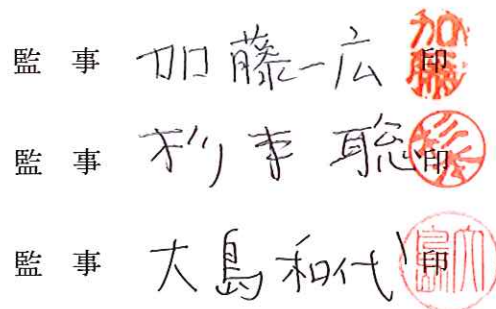 監 事 加藤一広 印
監 事 杉 聡 印
監 事 大島和代 印